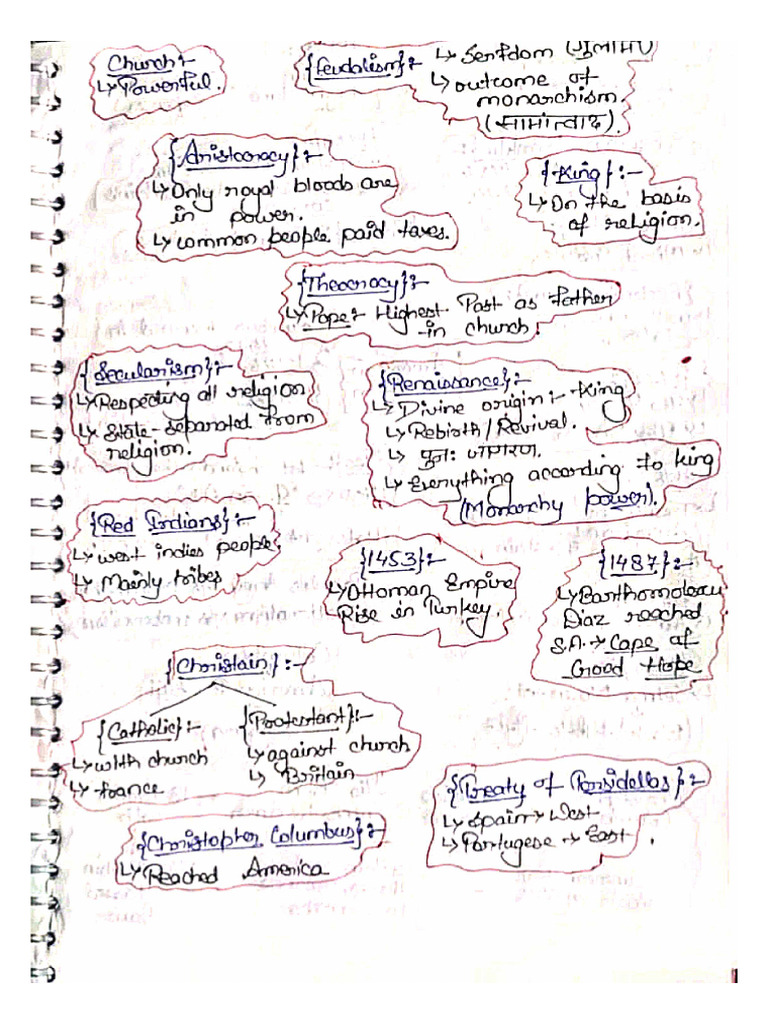 Church:-
↳ Powerful.
{Feudalism}:-
↳ Serfdom (गुलामी)
↳ outcome of
monarchism.
(सामांत्वाद).
{Aristocracy}:-
↳ Only royal bloods are
in power.
↳ common people paid taxes.
{King}:-
↳ On the basis
of religion.
{Theocracy}:-
↳ Pope:- Highest Past as father
in church.
{Secularism}:-
↳ Respecting all religion
↳ State-separated from
religion.
{Renaissance}:-
↳ Divine origin:- King
↳ Rebirth/Revival.
↳ पुनः जागरण.
↳ Everything according to king
(Monarchy power).
{Red Indians}:-
↳ west indies people.
↳ Mainly tribes
{1453}:-
↳ Ottoman Empire
Rise in Turkey.
{1487}:-
↳ Barthomoleau
Diaz reached
S.A. → Cape of
Good Hope
{Christain}:-
{Catholic}:-
↳ with church
↳ france
{Protestant}:-
↳ against church
↳ Britain
{Treaty of Torsidellas}:-
↳ Spain → West
↳ Portugese → East.
{Christopher Columbus}:-
↳ Reached America